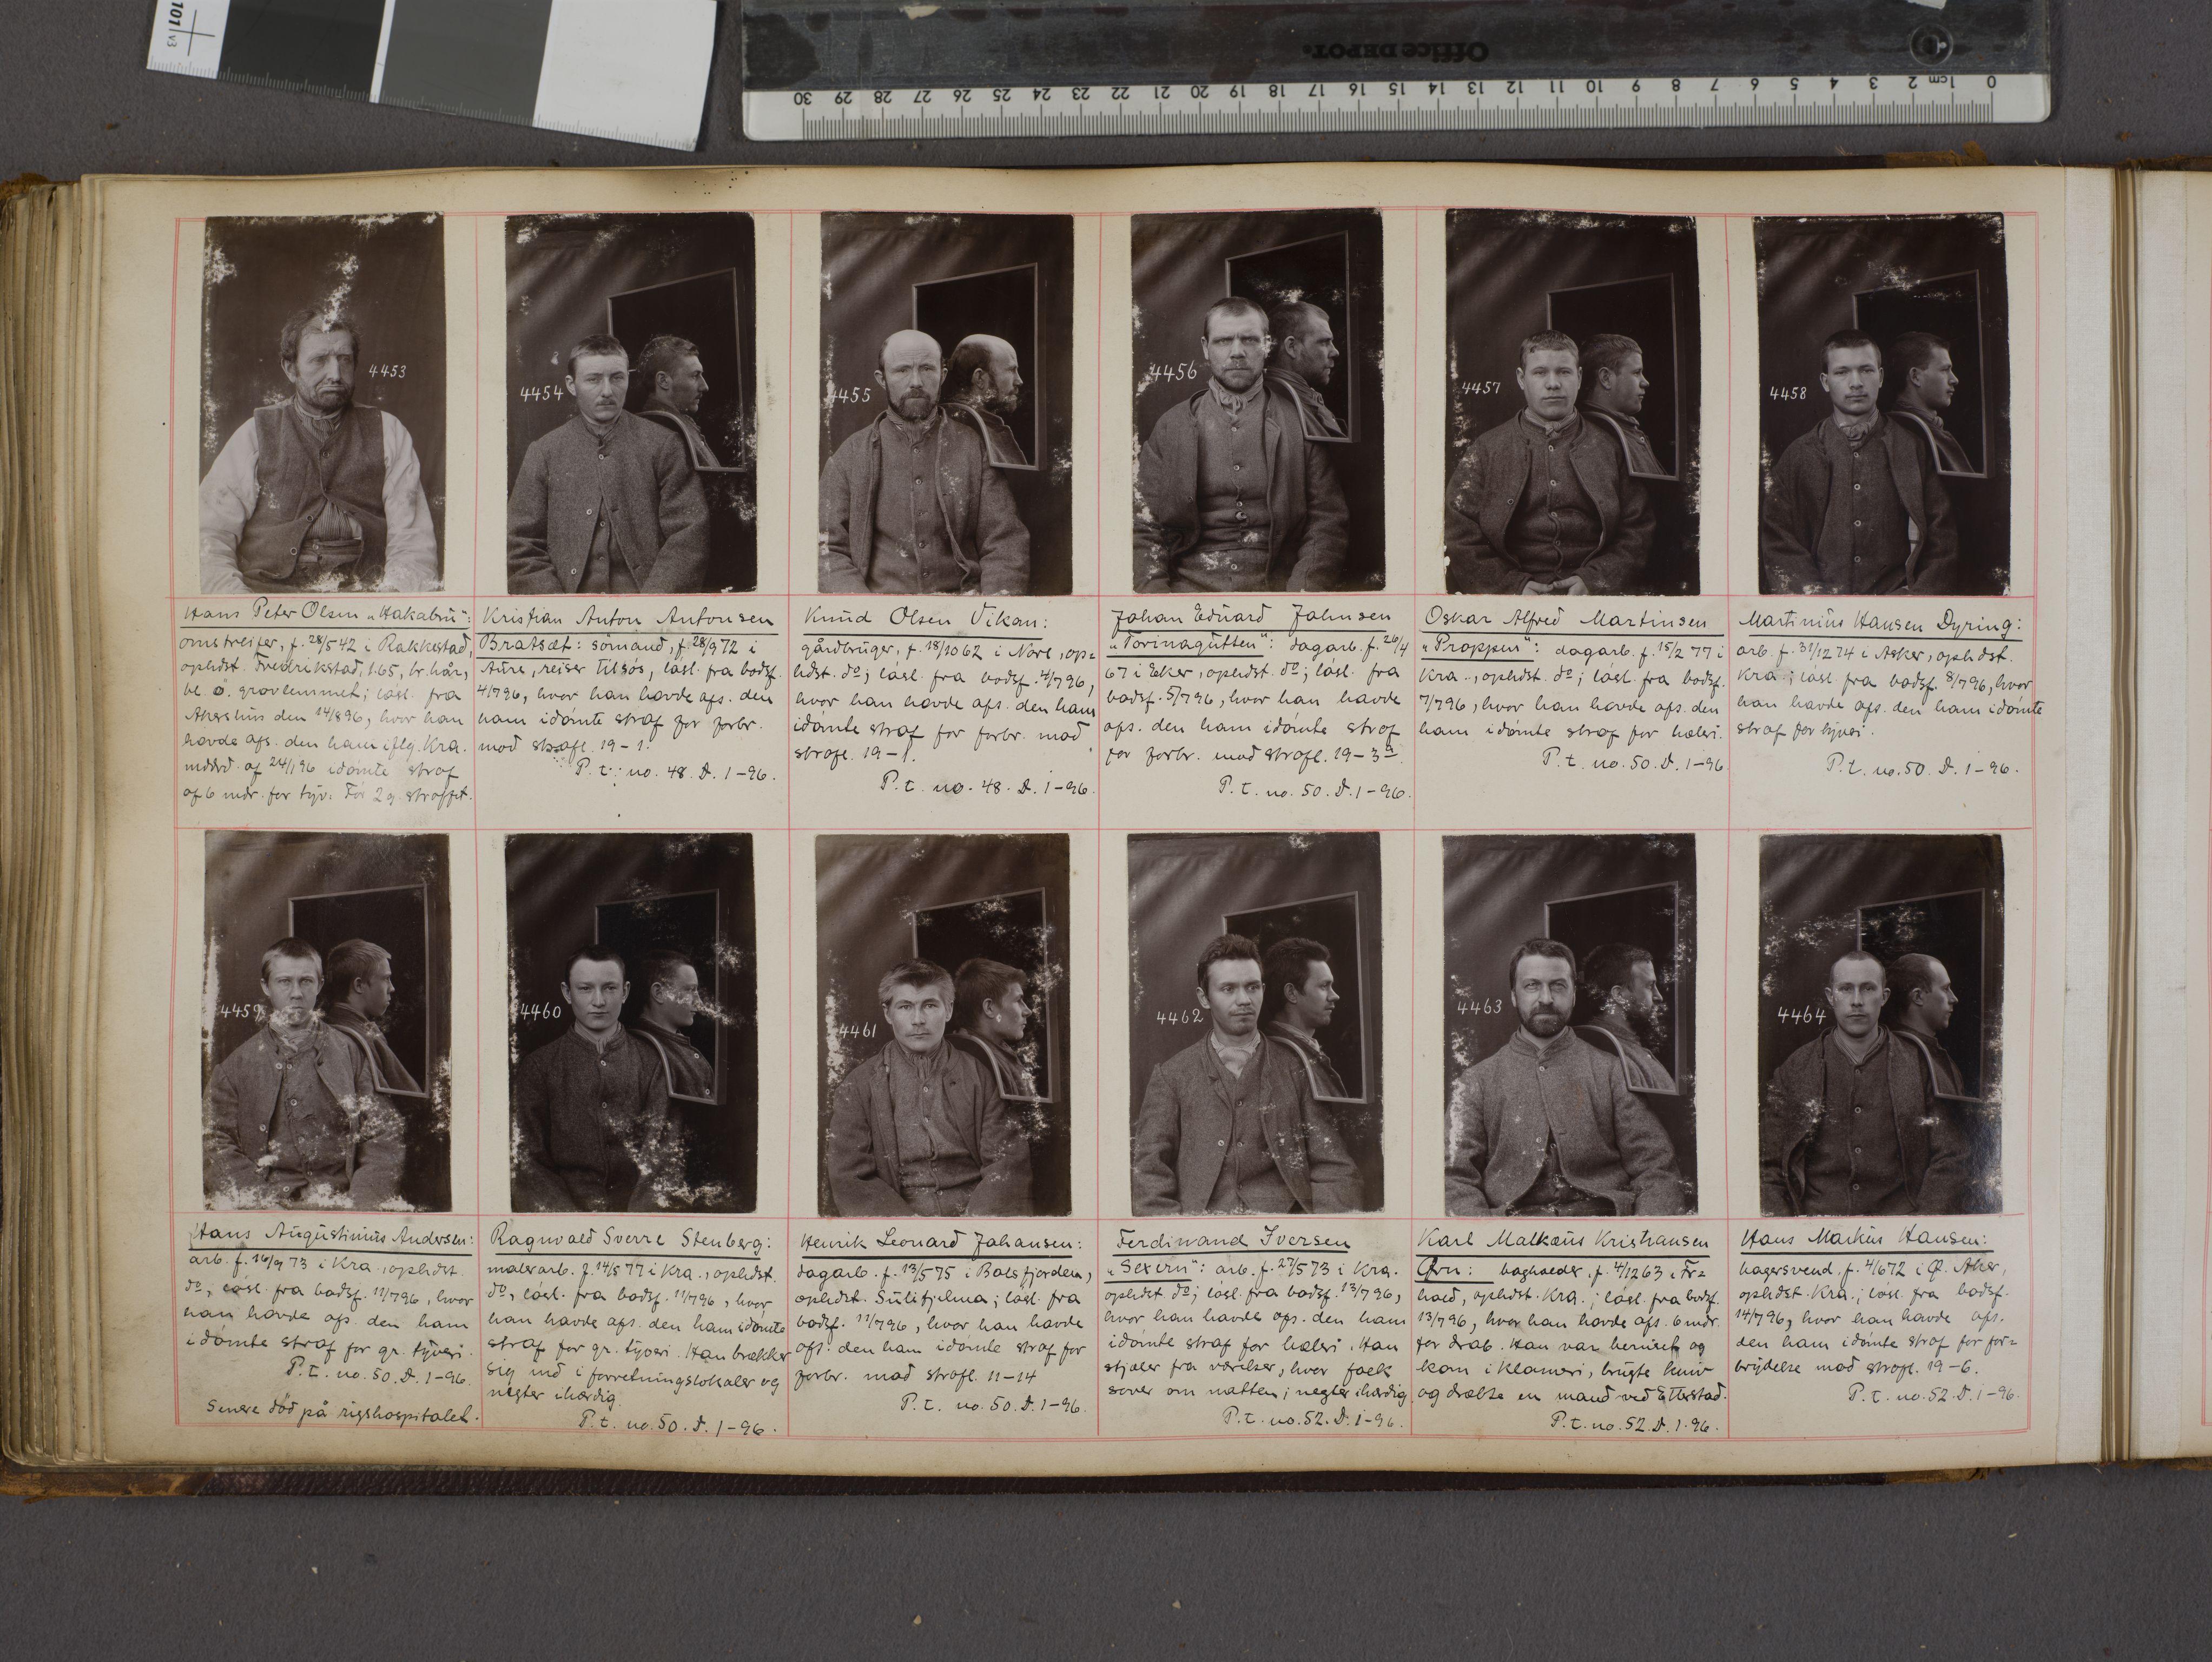 101 v3
Office DEPOT.
0 1cm 2 3 4 5 6 7 8 9 10 11 12 13 14 15 16 17 18 19 20 21 22 23 24 25 26 27 28 29 30
4453
Hans Peter Olsen „Hakabru":
omstreifer, f. 28/5 42 i Rakkestad,
opholdst. Fredrikstad, 1.65, br. hår,
bl. ö. grovlemmet; lösl. fra
Akershus den 14/8 96, hvor han
havde afs. den ham iflg. Kra.
mddrd af 24/1 96 idömte straf
af 6 mdr. for tyv. Før 2 g. straffet.
4454
Kristian Anton Antonsen
Bratsæt: sömand, f. 28/9 72 i
Aure, reiser tilsös, lösl. fra bodsf.
4/7 96, hvor han havde afs. den
ham idömte straf for forbr.
mod strafl. 19-1.
P.t. no. 48. D. 1-96.
4455
Knud Olsen Vikan:
gårdbruger, f. 18/10 62 i Nore, op=
hdst. do; lösl. fra bodsf. 4/7 96,
hvor han havde afs. den ham
idömte straf for forbr. mod
strafl. 19-1.
P.t. no. 48. D. 1-96.
4456
Johan Eduard Johnsen
„Torinagutten": dagarb. f. 26/4
67 i Eker, ophdst. do; lösl. fra
bodsf. 5/7 96, hvor han havde
afs. den ham idömte straf
for forbr. mod strafl. 19-3a.
P.t. no. 50. D. 1-96.
4457
Oskar Alfred Martinsen
„Proppen": dagarb. f. 15/2 77 i
Kra., ophdst. do; lösl. fra bodsf.
7/7 96, hvor han havde afs. den
ham idömte straf for hæleri.
P.t. no. 50. D. 1-96
4458
Martinius Hansen Dyring:
arb. f. 31/12 74 i Asker, ophdst.
Kra; lösl. fra bodsf. 8/7 96, hvor
han havde afs. den ham idömte
straf for tyveri.
P.t. no. 50. D. 1-96.
4459
Hans Augustinius Andersen:
arb. f. 16/9 73 i Kra., ophdst.
do; lösl. fra bodsf. 11/7 96, hvor
han havde afs. den ham
idömte straf for gr. tyveri.
P.t. no. 50. D. 1-96.
Senere död på rigshospitalet.
4460
Ragnvald Sverre Stenberg:
malerarb. f. 14/5 77 i Kra., ophdst.
do, lösl. fra bodsf. 11/7 96, hvor
han havde afs. den ham idömte
straf for gr. tyveri. Han brækker
sig ind i forretningslokaler og
negter ihærdig.
P.t. no. 50. D. 1-96.
4461
Henrik Leonard Johansen:
dagarb. f. 13/5 75 i Balsfjorden,
ophdst. Sulitjelma; lösl. fra
bodsf. 11/7 96, hvor han havde
afs. den ham idömte straf for
forbr. mod strafl. 11-14
P.t. no. 50. D. 1-96.
4462
Ferdinand Iversen
„Sexern": arb. f. 27/5 73 i Kra.
ophdst do; lösl. fra bodsf. 13/7 96,
hvor han havde afs. den ham
idömte straf for hæleri. Han
stjæler fra værelser, hvor folk
sover om natten; negter ihærdig
P.t. no. 52. D. 1-96.
4463
Karl Malkæus Kristiansen
f. 4/12 63 i Fr=
hald, ophdst. Kra.; lösl. fra bodsf.
13/7 96, hvor han havde afs. 6 mdr.
for drab. Han var beruset og
kom i klammeri, brugte kniv
og dræbte en mand ved Ettestad.
P.t. no. 52. D. 1-96.
4464
Hans Markus Hansen:
bagersvend, f. 4/6 72 i Ø. Aker,
ophdst. Kra.; lösl. fra bodsf.
14/7 96, hvor han havde afs.
den ham idömte straf for for=
brydelse mod strafl. 19-6.
P.t. no. 52. D. 1-96.